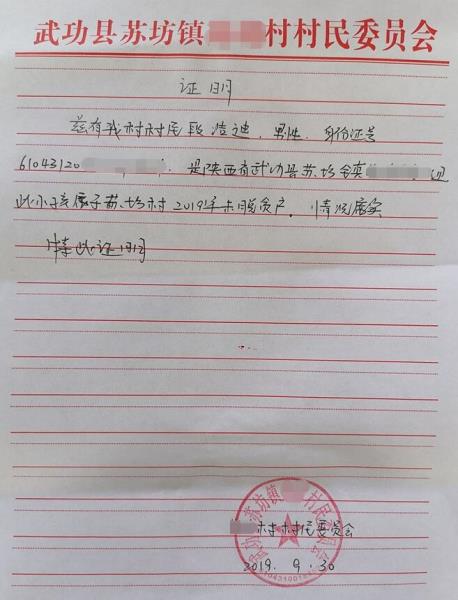 武功县苏坊镇 村村民委员会
证明
兹有我村村民段浩迪，男性，身份证号
61043120 ，是陕西省武功县苏坊镇
此小孩属于苏坊村2019年未脱贫户，情况属实
特此证明
村村民委员会
2019. 9. 30
武功县苏坊镇 村村民委员会